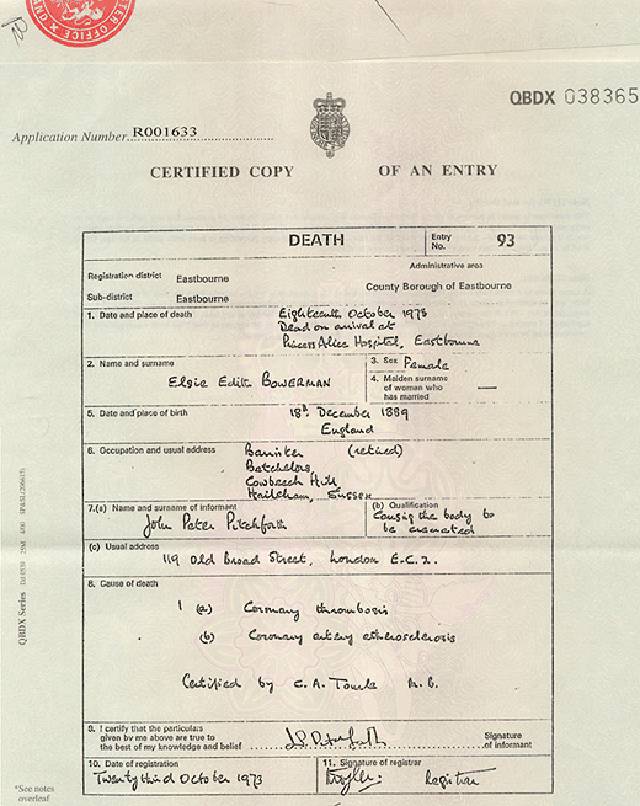 TER OFFICE
QBDX 038365
Application Number R001633
CERTIFIED COPY OF AN ENTRY
DEATH Entry No. 93
Administrative area
Registration district Eastbourne
County Borough of Eastbourne
Sub-district Eastbourne
1. Date and place of death Eighteenth October 1973
Dead on arrival at
Princess Alice Hospital, Eastbourne
2. Name and surname Elsie Edith BOWERMAN
3. Sex Female
4. Maiden surname of woman who has married —
5. Date and place of birth 18th December 1889
England
6. Occupation and usual address Barrister (retired)
Batchelors,
Cowbeech Hill
Hailsham, Sussex
7.(a) Name and surname of informant
John Peter Pitchforth
(b) Qualification
Causing the body to
be cremated
(c) Usual address
119 Old Broad Street, London E.C.2.
8. Cause of death
1 (a) Coronary thrombosis
(b) Coronary artery atherosclerosis
Certified by C.A. M.B.
9. I certify that the particulars
given by me above are true to
the best of my knowledge and belief
Signature
of informant
10. Date of registration
Twenty third October 1973
11. Signature of registrar
Registrar
*See notes
overleaf
QBDX Series